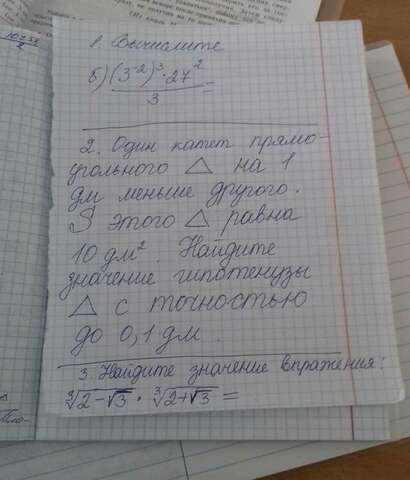 1. Вычислите
б) (3⁻²)³ · 27² / 3 =
2. Один катет прямо-
угольного △ на 1
дм меньше другого.
S этого △ равна
10 дм². Найдите
значение гипотенузы
△ с точностью
до 0,1 дм.
3 Найдите значение выражения:
∛2-√3 · ∛2+√3 =